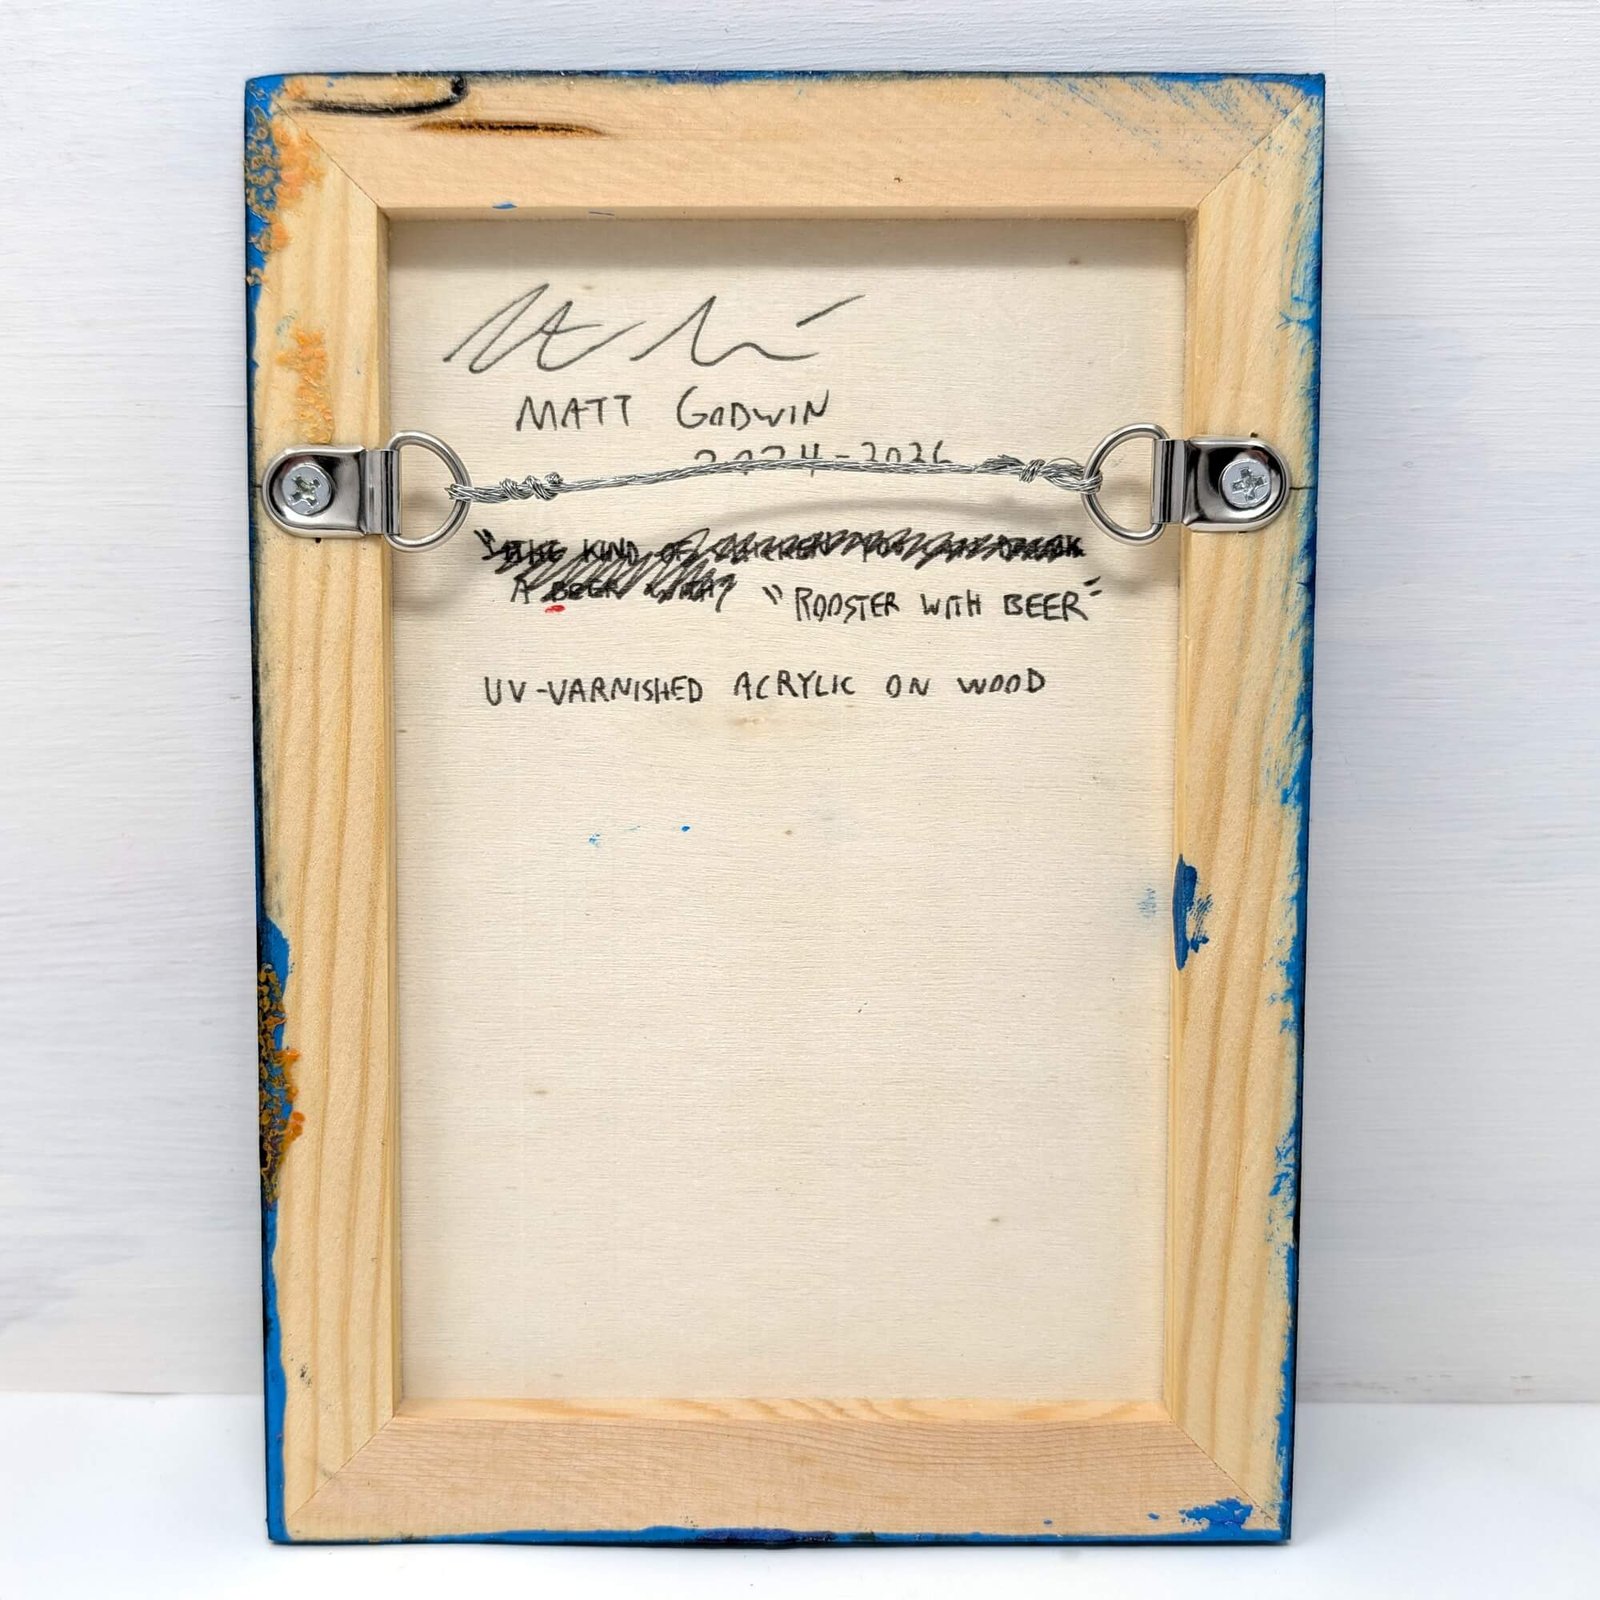 MATT GODWIN
2024-2026
KIND OF
A BEER WITH "ROOSTER WITH BEER"
UV-VARNISHED ACRYLIC ON WOOD